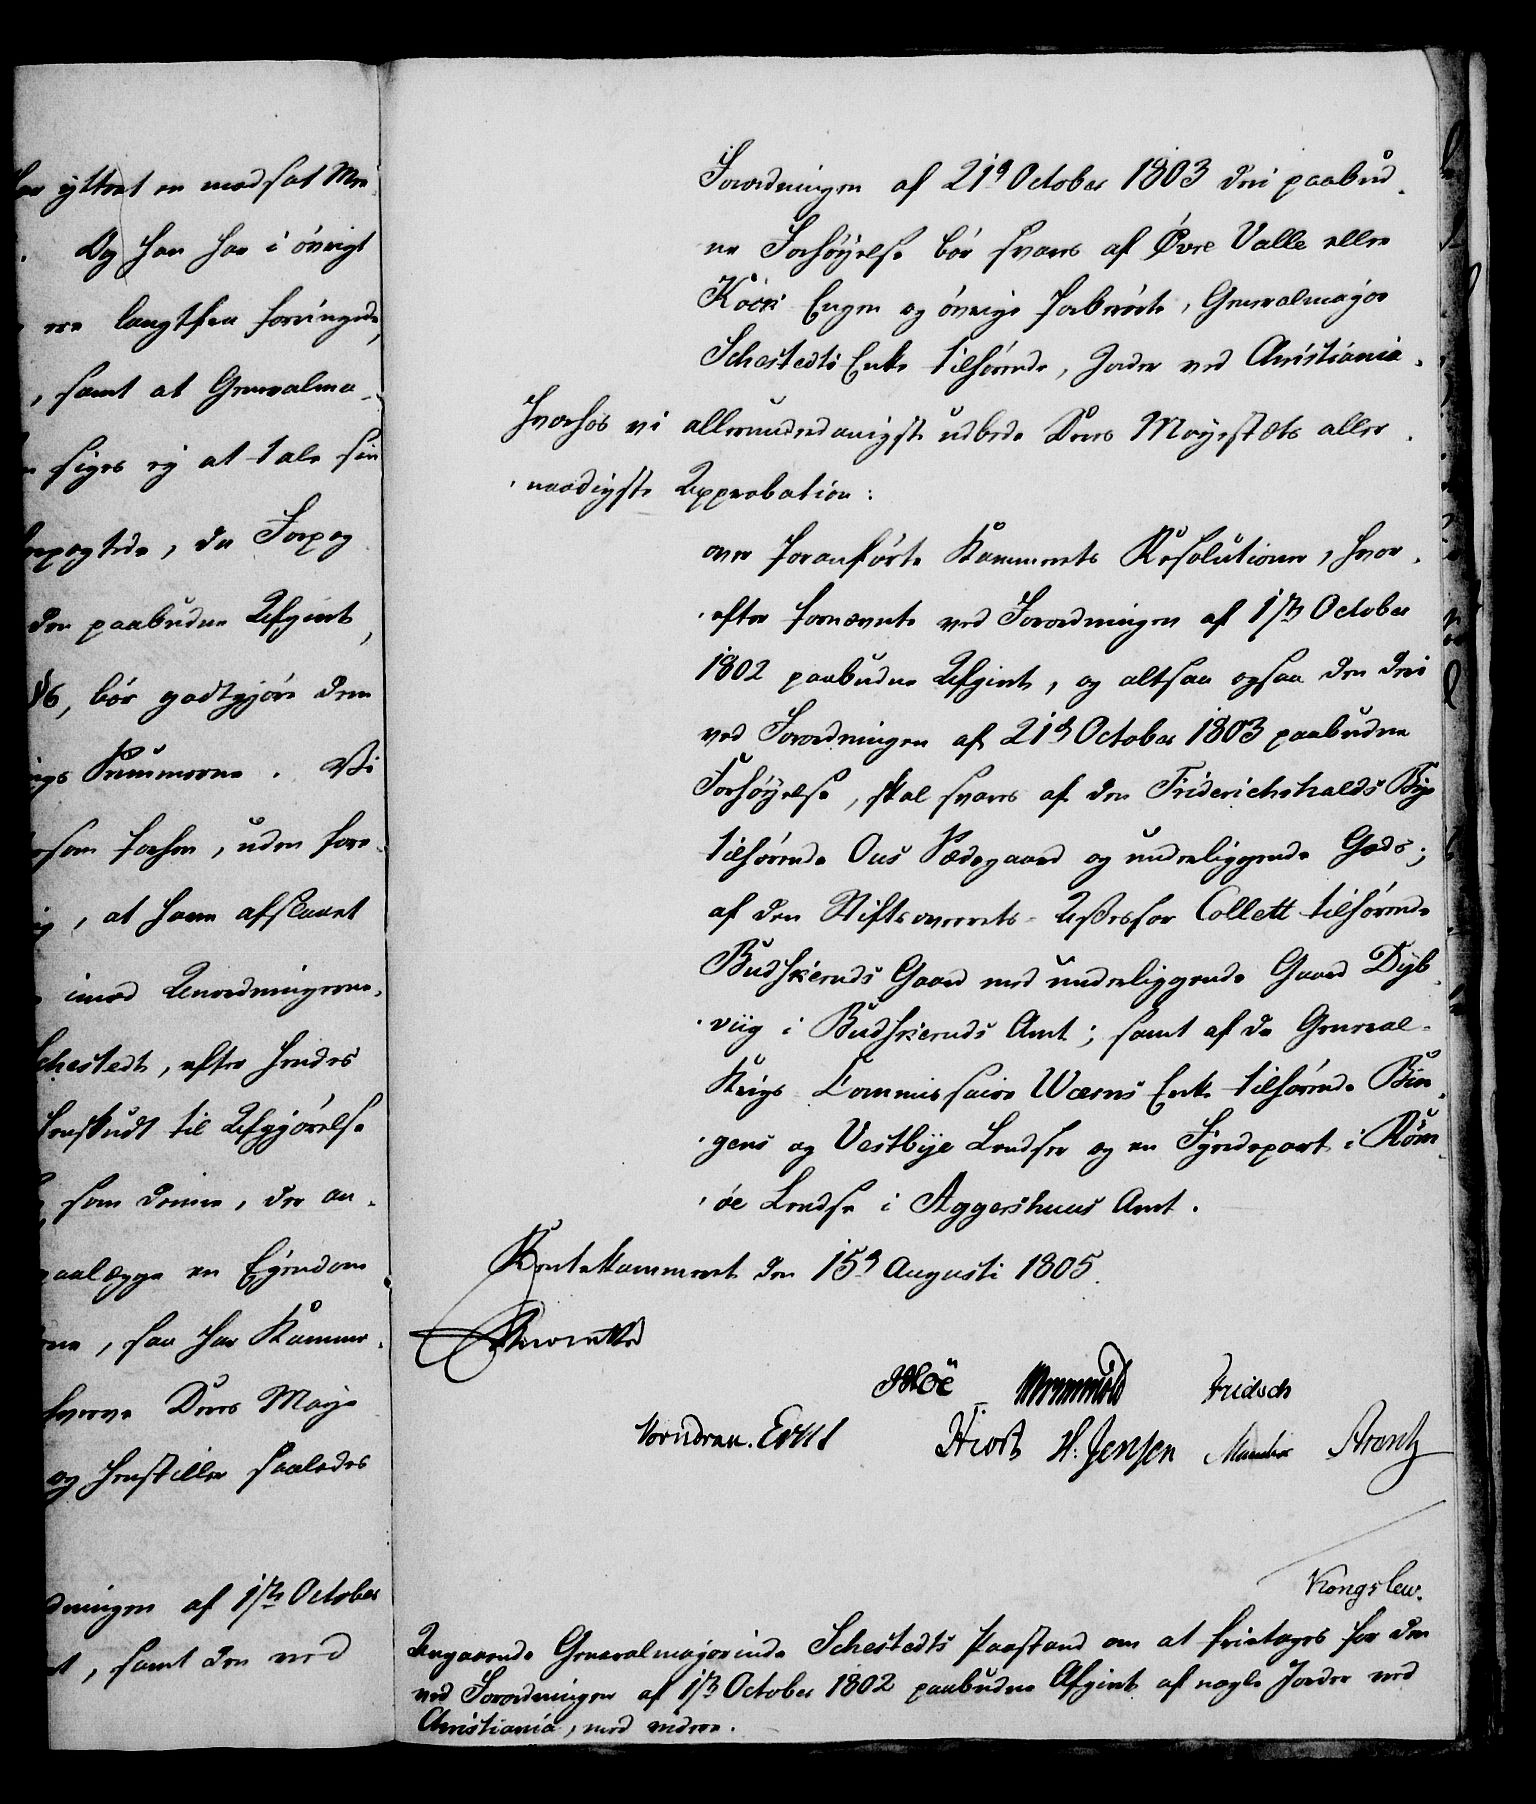 har yttret en modsat Mee
Og han har i øvrigt
ere langtfra forringede,
, samt at Generalma-
siges ej at tale sin
, da Forpag
den paabudne Afgivt,
§6, bør godtgjøre dem
Summerne. Vi
som forhen, uden fore-
, at have afslaaet
imod Anordningerne.
Schestedt, efter hendes
henskudt til Afgjørelse
som denne, der an-
paalægge en Ejendom
, saa har Kammer-
Deres Maje
og henstiller saaledes
dningen af 1ste October
, samt den ved
Forordningen af 21de October 1803 deri paabud-
ne Forhøyelse bør svares af Øvre Valle eller
Køcks Engen og øvrige forberørte, Generalmajor
Schestedts Enke tilhørende, Jorder ved Christiania.
Hvorhos vi allerunderdanigst udbede Deres Mayestæts aller-
naadigste Approbation:
over foranførte Kammerets Resolutioner, hvor-
efter fornævnte ved Forordningen af 1ste October
1802 paabudne Afgivt, og altsaa ogsaa den deri
ved Forordningen af 21de October 1803 paabudne
Forhøyelse, skal svares af den Friderichshalds Bye
tilhørende Ous Sædegaard og underliggende Gods;
af den Stiftsoverrets-Assessor Collett tilhørende
Budskieruds Gaard med underliggende Gaard Dyb-
viig i Budskieruds Amt; samt af de General-
Krigs Commissaire Wærns Enke tilhørende Bin-
gens og Vestbye Lendser og en Fjerdepart i Røm-
øe Lendse i Aggershuus Amt.
Rentekammeret den 15de Augusti 1805.
Reventlow
Moe Wormskiold Fridsch
Vorndran. Ernst Hiort H. Jensen Arentz
Kongslew.
Angaaende Generalmajorinde Schestedts Paastand om at fritages for den
ved Forordningen af 1ste October 1802 paabudne Afgivt af nogle Jorder ved
Christiania, med videre.